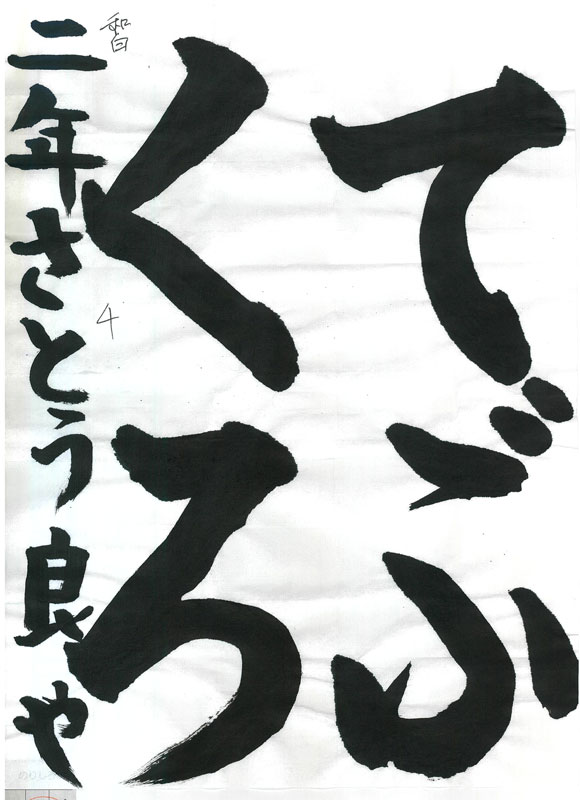 てぶ
くろ
二年さとう良や
智
4